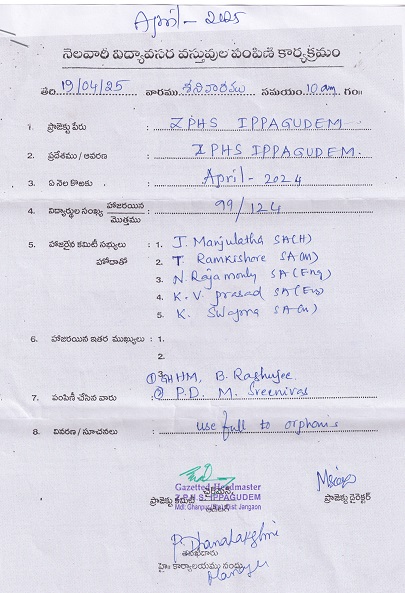 April - 2025
నెలవారీ విద్యావసర వస్తువుల పంపిణీ కార్యక్రమం
తేది 19/04/25 వారము శనివారము సమయం 10 am గం॥
1. ప్రాజెక్టు పేరు : ZPHS IPPAGUDEM
2. ప్రదేశము / ఆవరణ : ZPHS IPPAGUDEM.
3. ఏ నెల కొఱకు : April - 2024
4. విద్యార్థుల సంఖ్య హాజరయిన / మొత్తము : 99/124
5. హాజరైన కమిటీ సభ్యులు : 1. J. Manjulatha SA(H)
హోదాతో 2. T. Ramkishore SA(M)
3. N. Rajamouly SA(Eng)
4. K. V. prasad SA(En)
5. K. Swapna
6. హాజరయిన ఇతర ముఖ్యులు : 1.
2.
3.
① GHHM, B. Raghujee
7. పంపిణీ చేసిన వారు : ② P.D. M. Sreenivas
8. వివరణ / సూచనలు : use full to orphans
Gazetted Headmaster
ప్రాజెక్టు కమిటీ Z.P.H.S. IPPAGUDEM ప్రాజెక్టు డైరెక్టర్
Mdl: Ghanpur Dist Jangaon
P. Dhanalakshmi
హై: కార్యాలయము
Manager